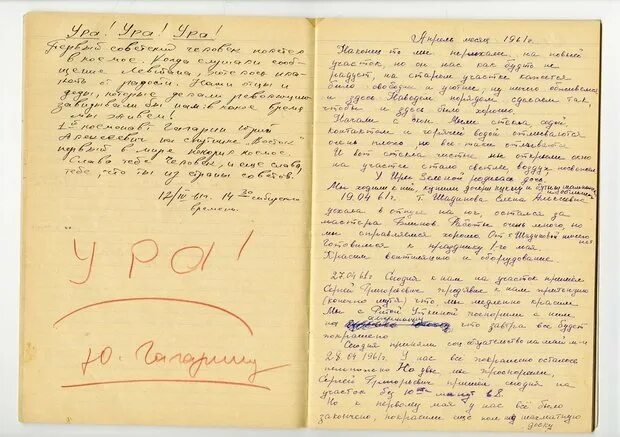 Ура! Ура! Ура!
Первый советский человек полетел
в космос. Когда слушали сооб-
щение Левитана, хотелось пла-
кать от радости. Наши отцы и
деды, которые делали революцию
завидывали бы нам: в какое время
мы живем!
1й космонавт Гагарин Юрий
Алексеевич на спутнике "Восток"
первый в мире покорил космос.
Слава тебе человек, и еще слава
тебе, что ты из страны советов!
12/IV 61г. 14 30 сибирского
времени.
УРА!
Ю. Гагарину
Апрель месяц 1961г.
Наконец-то мы переехали на новый
участок, но он нас как будто не
радует, на старом участке кажется
было свободней и уютнее, ну ничего обживемся
и здесь. Наведем порядок, сделаем так,
чтобы и здесь было хорошо.
Начали с окон. Мыли стекла содой
контактом и горячей водой отмываются
очень плохо, но все-таки отмываются.
И вот стекла чистые мы открыли окно
на участке стало светлей воздух
У Иры Зеленой родилась дочь.
Мы ходили к ней, купили дочери куклу и
19.04.61г. Т. Шадинова Елена Алексеевна
уехала в отпуск на юг, осталась за
мастера Работы очень много, но
мы справляемся хорошо.
Готовимся к празднику 1-го мая.
Красим вентиляцию и оборудование.
27.04.61г Сегодня к нам на участок пришел
Сергей Григорьевич предъявил к нам претензию
(конечно шутя) что мы медленно красим.
Мы с Ритой Уткиной поспорили с ним
на что завтра все будет
покрашено
Сегодня приняли соц. обязательство на май м-ц
28.04 1961г. У нас всё покрашено осталось
немножко На две мы проспорили,
Сергей Григорьевич пришел сегодня на
участок без 10ти минут в 8.
Но к первому мая у нас всё было
закончено, покрасили еще пол под шахматную
доску